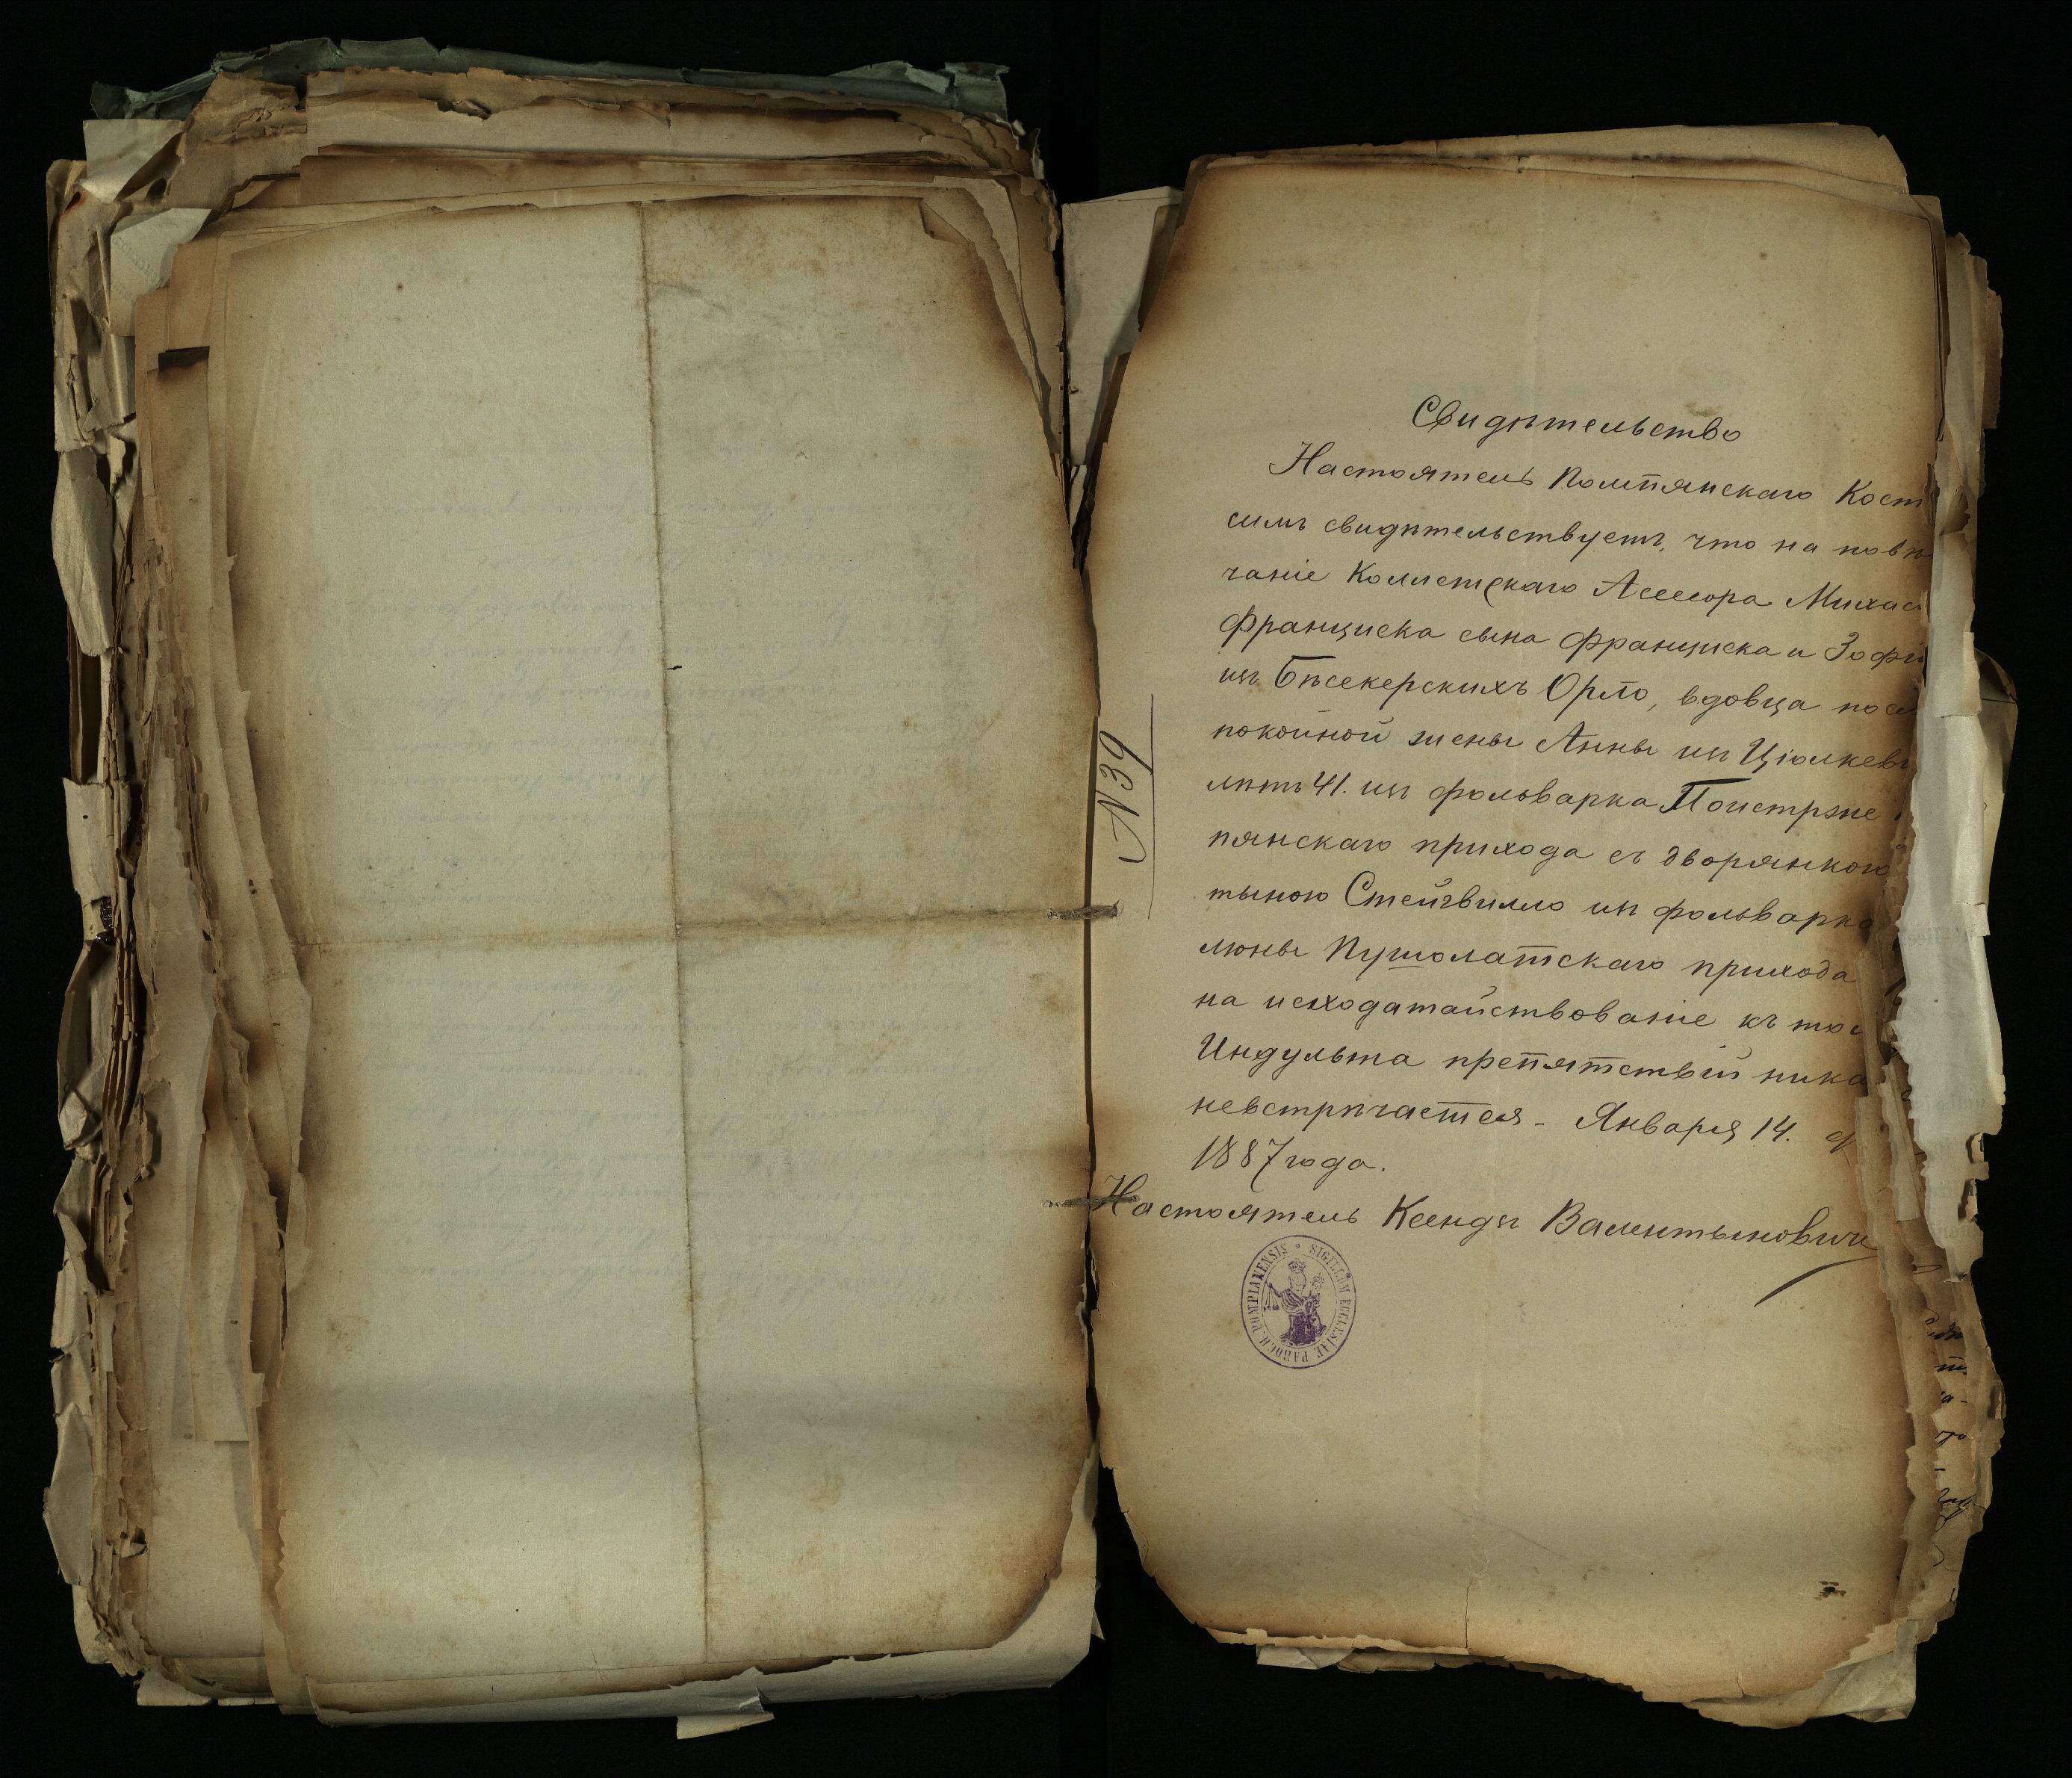 Свидѣтельство
Настоятель Помпянскаго Кост
симъ свидѣтельствуетъ, что на повѣн
чаніе Коллежскаго Ассесора Михаи
Франциска сына Франциска и Зофі
изъ Бѣсекерскихъ Орло, вдовца посл
покойной жены Анны изъ Ціолкеви
лѣтъ 41. изъ фольварка Поистрже
пянскаго прихода съ дворянкою
тыною Стейгвилло изъ фольварка
люны Пушолатскаго прихода
на исходатайствованіе къ то
Индульта препятствій ника
невстрѣчается - Января 14.
1887 года.
Настоятель Ксендзъ Валентыновичъ
N 39
SIGILLUM ECCLESIAE PAROCH POMPIANENSIS